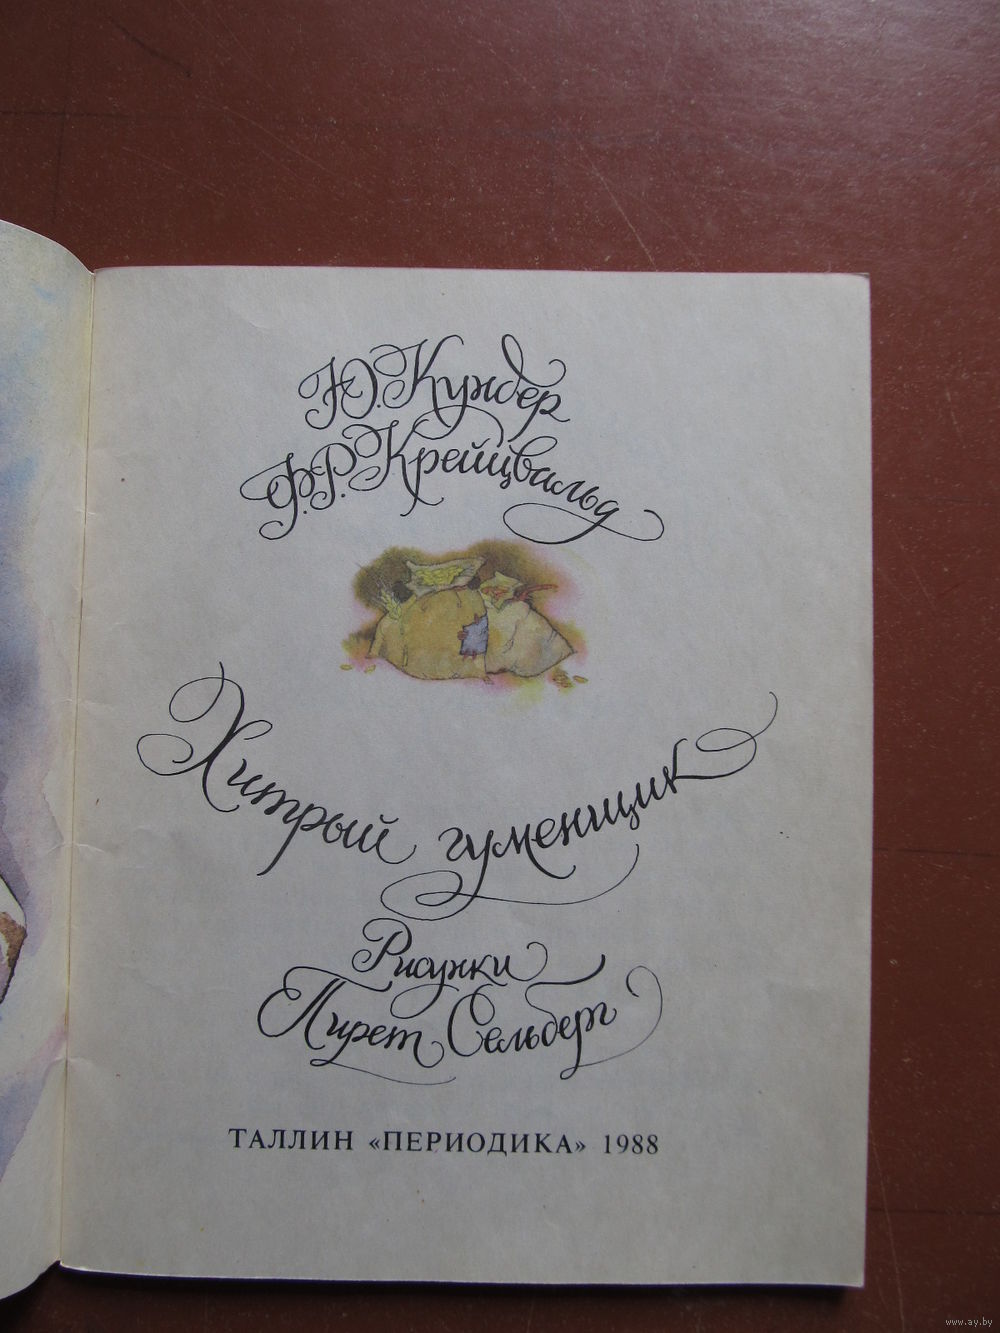 Ю. Кундер
Ф.Р. Крейцвальд
Хитрый гуменщик
Рисунки
Пирет Сельберг
ТАЛЛИН «ПЕРИОДИКА» 1988
www.ay.by